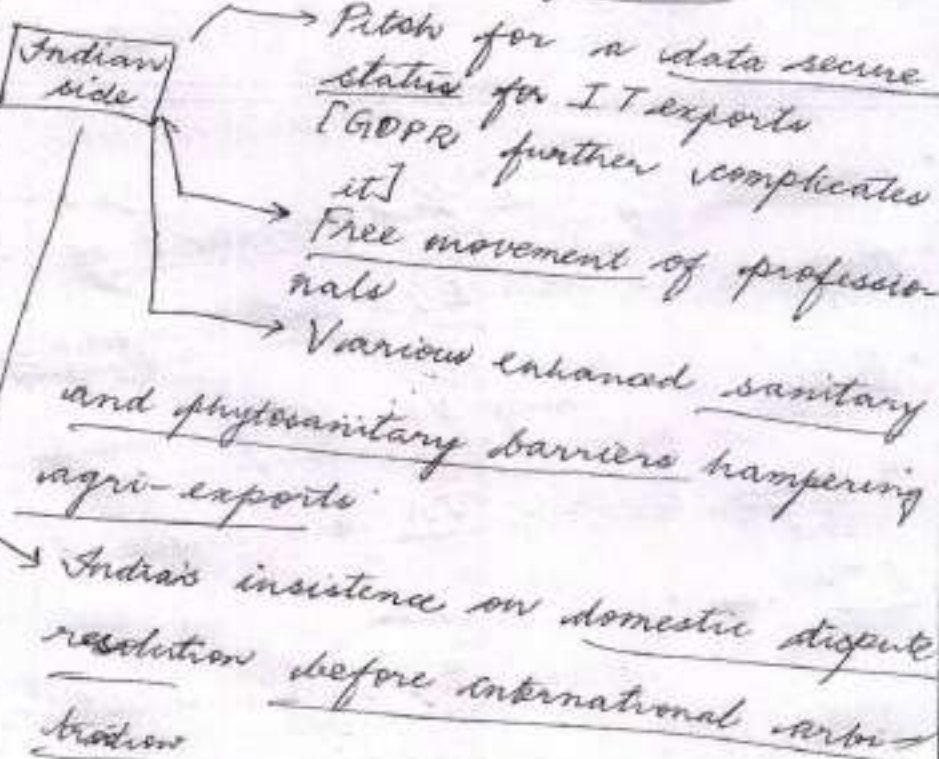 Indian
side
Pitch for a data secure
status for IT exports
[GDPR further complicates
it]
Free movement of professio-
nals
Various enhanced sanitary
and phytosanitary barriers hampering
agri-exports
India's insistence on domestic dispute
resolution before international arbi-
tration